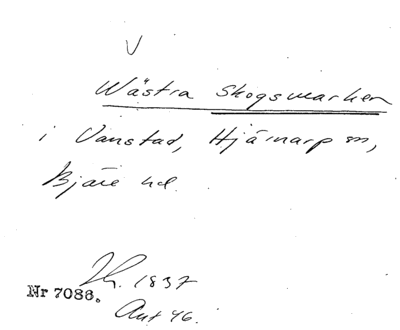 V
Wästra Skogsmarken
i Vanstad, Hjärnarp sn,
Bjäre hd.
Jh. 1837
Nr 7086.
Akt 46.